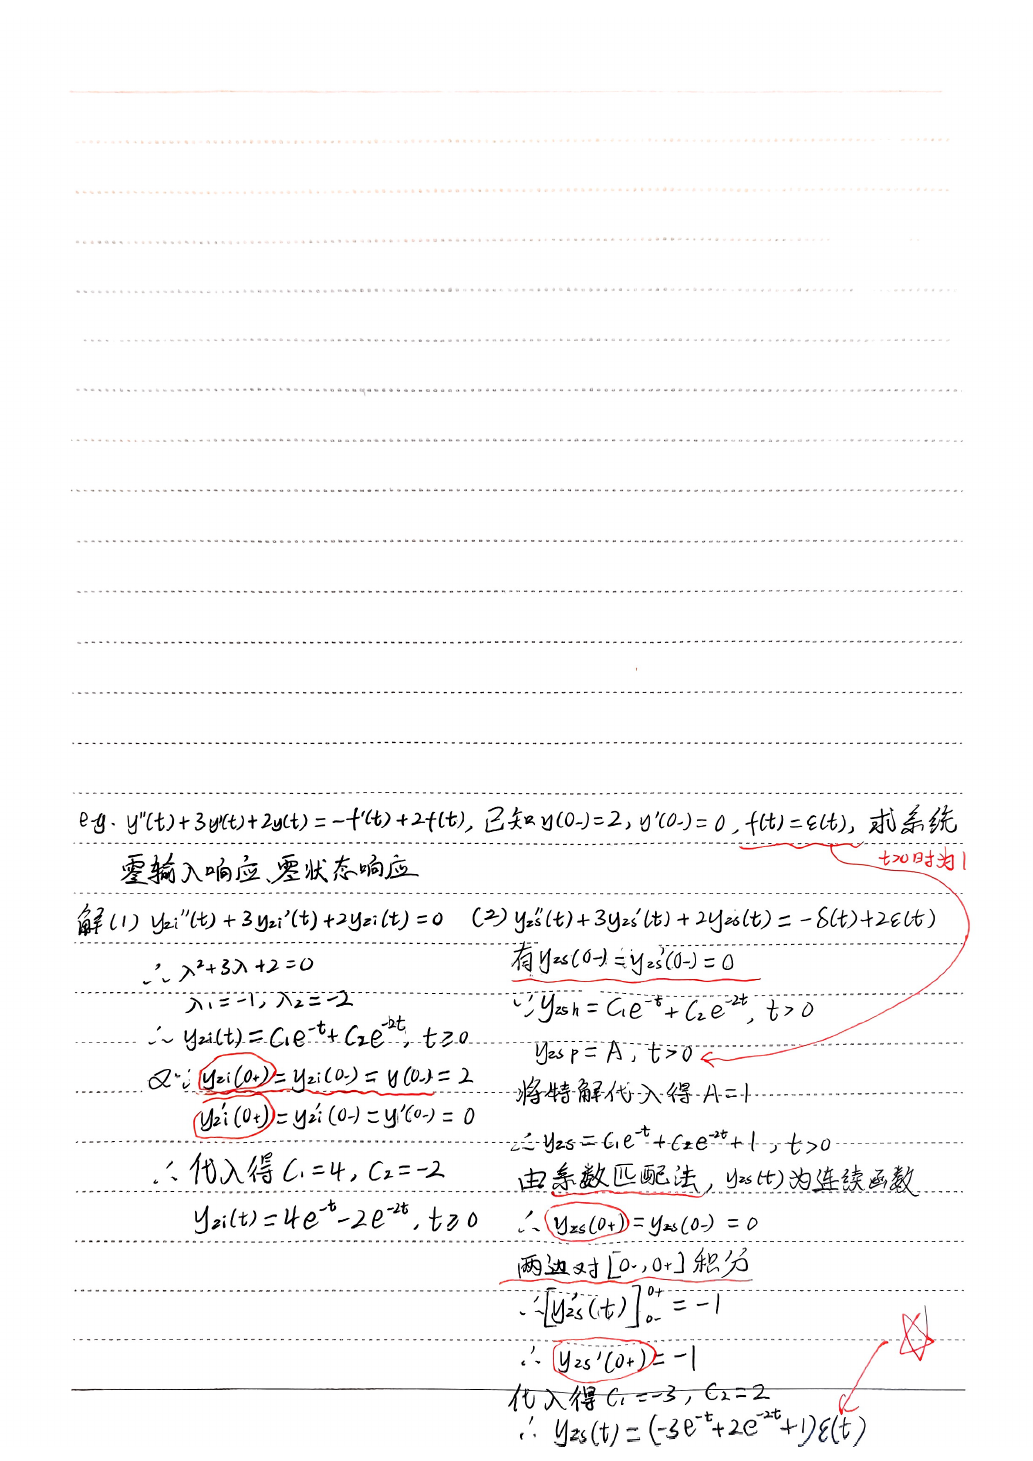 e.g. y''(t)+3y'(t)+2y(t)=-f'(t)+2f(t), 已知y(0-)=2, y'(0-)=0, f(t)=ε(t), 求系统
t>0时为1
零输入响应、零状态响应
解(1) yzi''(t)+3yzi'(t)+2yzi(t)=0
∴ λ²+3λ+2=0
λ1=-1, λ2=-2
∴ yzi(t)=C1e^-t+C2e^-2t, t≥0
又∵ yzi(0+)=yzi(0-)=y(0-)=2
yzi'(0+)=yzi'(0-)=y'(0-)=0
∴ 代入得 C1=4, C2=-2
yzi(t)=4e^-t-2e^-2t, t≥0
(2) yzs''(t)+3yzs'(t)+2yzs(t)=-δ(t)+2ε(t)
有yzs(0-)=yzs'(0-)=0
∵ yzsh=C1e^-t+C2e^-2t, t>0
yzsp=A, t>0
将特解代入得A=1
∴ yzs=C1e^-t+C2e^-2t+1, t>0
由系数匹配法, yzs(t)为连续函数
∴ yzs(0+)=yzs(0-)=0
两边对[0-,0+]积分
∴ [yzs'(t)]0-^0+=-1
∴ yzs'(0+)=-1
代入得 C1=-3, C2=2
∴ yzs(t)=(-3e^-t+2e^-2t+1)ε(t)